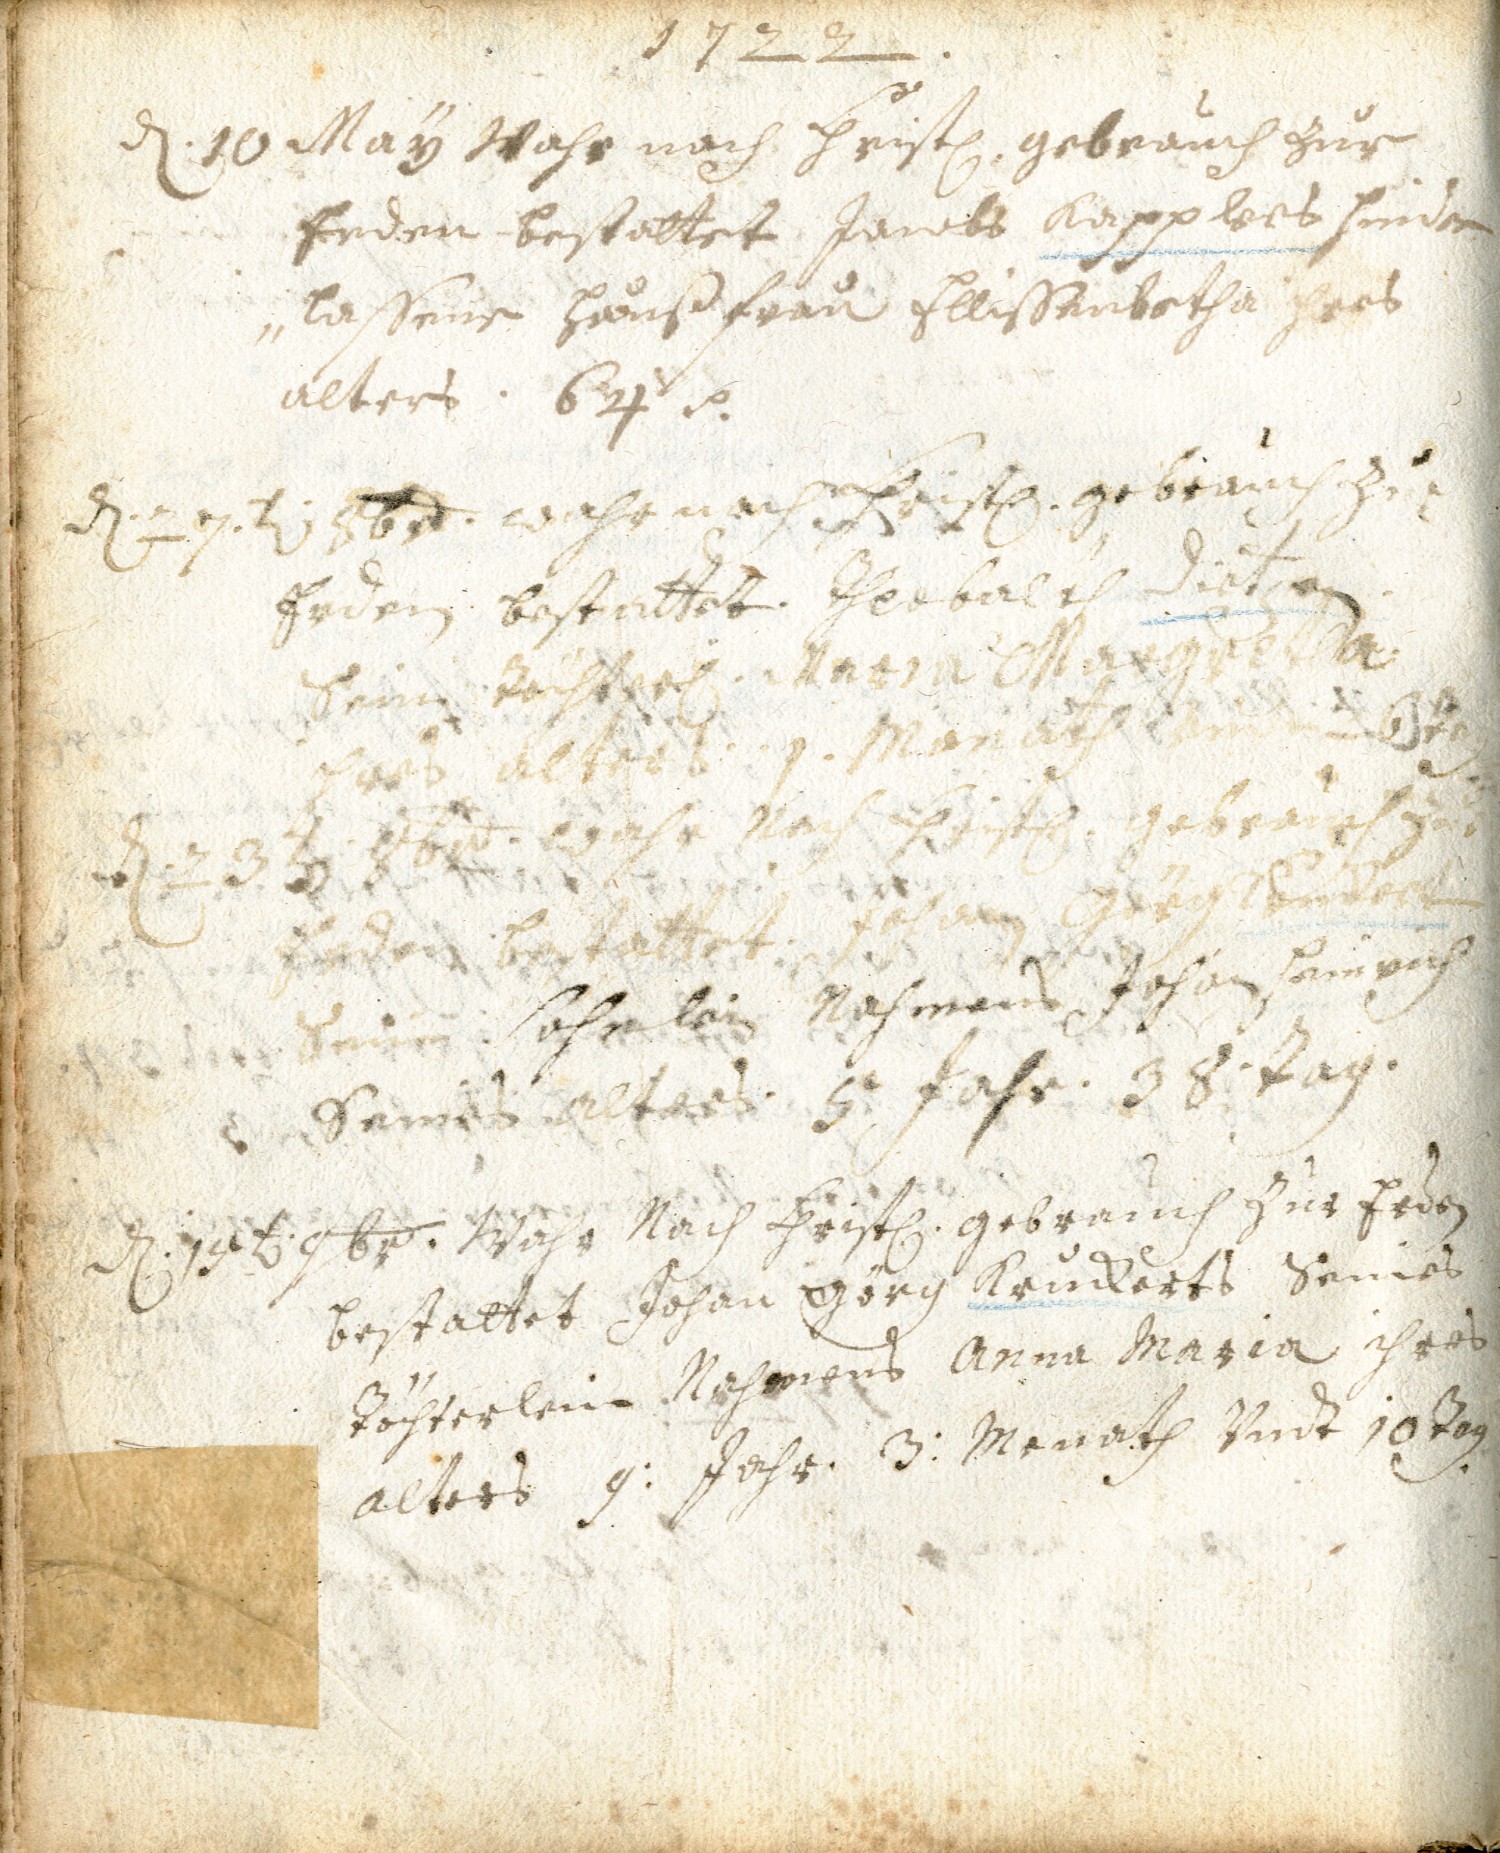 1722.
d. 10 Maÿ Wahr nach Christl. gebrauch zur
Erden bestattet Jacobs Kapplers hinder
„lassene Haußfrau Ellissenbetha ihres
alters. 64 J.
d. 27.t. 8br. wahr nach Christl. gebrauch zur
Erden bestattet. Thebalth Dietzen
Sein töchterl. Maria Margretha.
ihres alters. 1. Monath
d. 23 t. 8br. wahr Nach Christl. gebrauch zur
Erden bestattet. Johan Görg
Sein Sohnlein Nahmens Johan Heinrich
Seines alters. 5 Jahr. 38. Tag.
d. 19t. 9br. Wahr Nach Christl. gebrauch zur Erden
bestattet Johan Görg Kruckerts Seines
Töchterlein Nahmens Anna Maria ihres
alters 9: Jahr. 3: Monath Undt 10 Tag